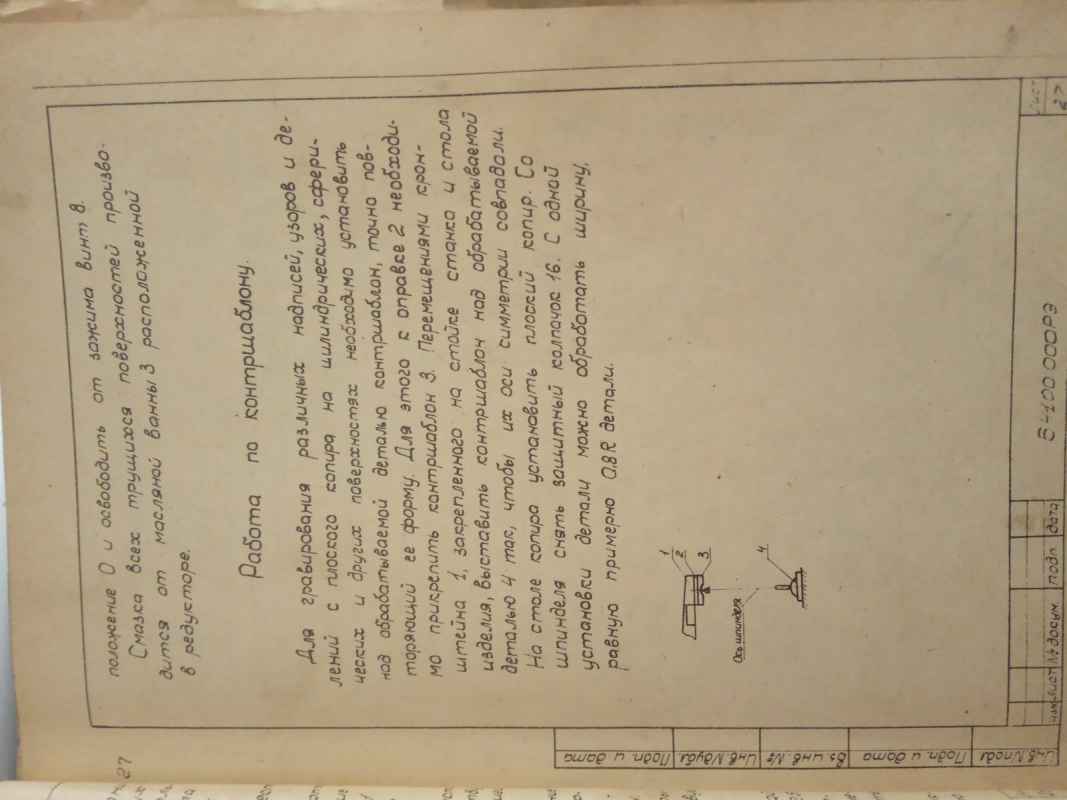 положение 0 и освободить от зажима винт 8.
Смазка всех трущихся поверхностей произво-
дится от масляной ванны 3 расположенной
в редукторе.
Работа по контршаблону.
Для гравирования различных надписей, узоров и де-
лений с плоского копира на цилиндрических, сфери-
ческих и других поверхностях необходимо установить
над обрабатываемой деталью контршаблон, точно пов-
торяющий ее форму. Для этого к оправке 2 необходи-
мо прикрепить контршаблон 3. Перемещениями крон-
штейна 1, закрепленного на стойке станка и стола
изделия, выставить контршаблон над обрабатываемой
деталью 4 так, чтобы их оси симметрии совпадали.
На столе копира установить плоский копир. Со
шпинделя снять защитный колпачок 16. С одной
установки детали можно обработать ширину,
равную примерно 0.8R детали.
1
2
3
Ось шпинделя
4
Инв.№подл
Подп. и дата
Вз. инв. №
Инв.№дубл.
Подп. и дата
изм.
лист
№ докум.
подп
дата
лист
27
27